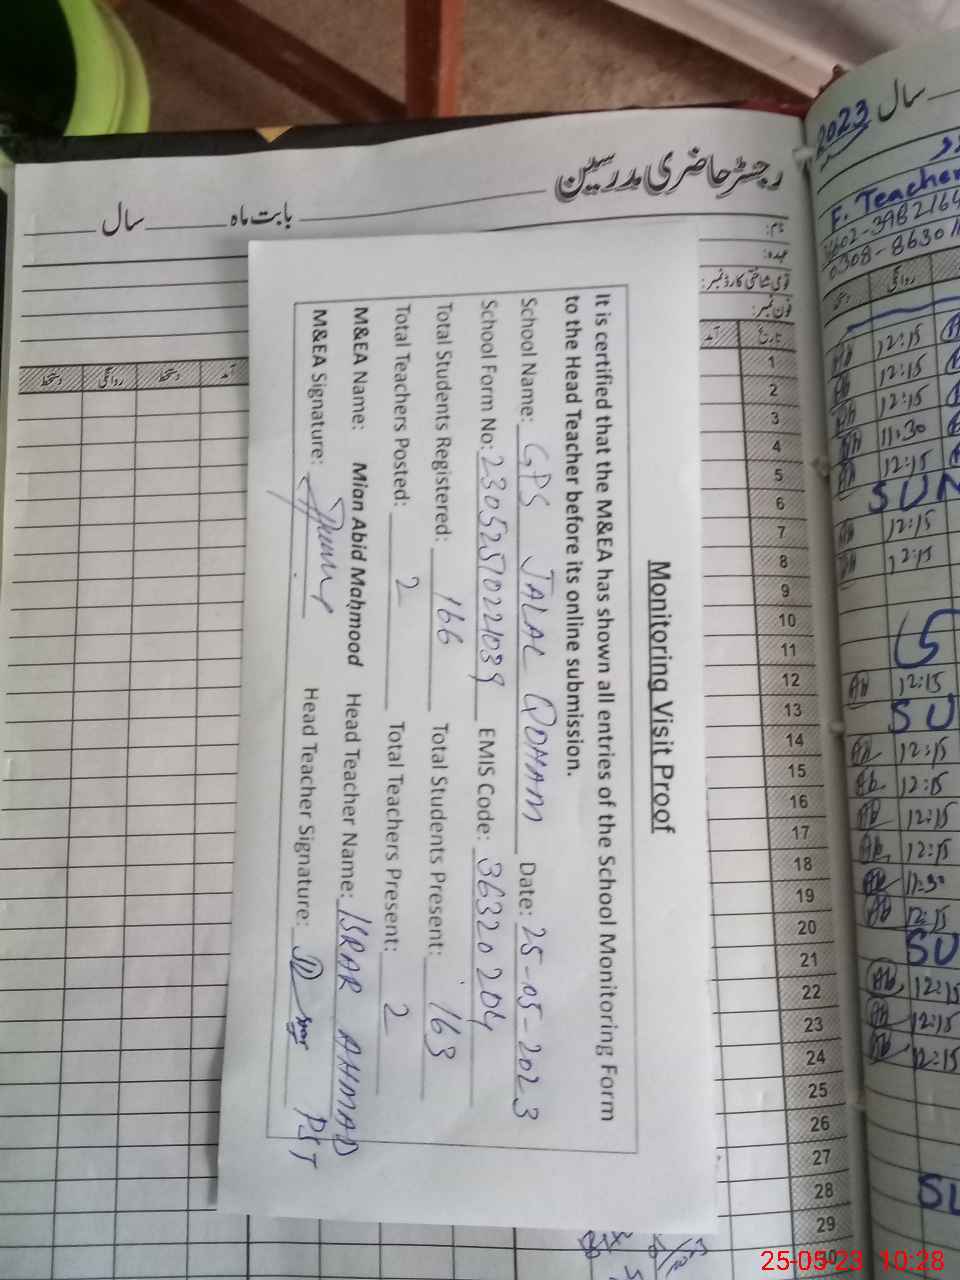 رجسٹر حاضری مدرسین
بابت ماہ سال
نام:
عہدہ:
قومی شناختی کارڈ نمبر:
فون نمبر:
تاریخ آمد دستخط روانگی دستخط
1
2
3
4
5
6
7
8
9
10
11
12
13
14
15
16
17
18
19
20
21
22
23
24
25
26
27
28
29
30
Monitoring Visit Proof
It is certified that the M&EA has shown all entries of the School Monitoring Form
to the Head Teacher before its online submission.
School Name: GPS JALAL Date: 25-05-2023
School Form No: EMIS Code: 36320204
Total Students Registered: 166 Total Students Present: 163
Total Teachers Posted: 2 Total Teachers Present: 2
M&EA Name: Mian Abid Mahmood Head Teacher Name: ISRAR AHMAD
M&EA Signature: Head Teacher Signature: PST
2023 سال
E. Teacher
روانگی دستخط
12:15
12:15
12:15
11:30
12:15
SUN
12:15
12:15
12:15
SU
12:15
12:15
12:15
12:15
11:30
12:15
SU
12:15
12:15
12:15
SU
25-05-23 10:28